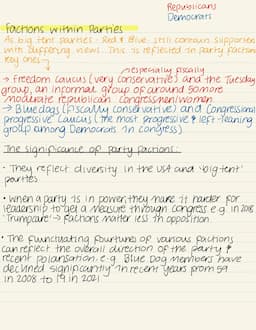 Republicans
Democrats
Factions within Parties
As big tent parties, Red & Blue still contain supporters
with differing views. This is reflected in party factions
key ones
especially fiscally
→ Freedom caucus (very conservative) and the Tuesday
group, an informal group of around 50 more
moderate republican congressmen/women.
→ Blue dogs (fiscally conservative) and Congressional
progressive caucus (the most progressive & left-leaning
group among Democrats in congress)
The significance of party factions:
• They reflect diversity in the USA and 'big-tent'
parties
• When a party is in power, they make it harder for
leadership to get a measure through congress e.g in 2018
'Trumpcare' → factions matter less in opposition.
• The fluncuating fourtunes of various factions
can reflect the overall direction of the party &
recent polarisation. e.g. Blue Dog members have
declined significantly in recent years from 59
in 2008 to 19 in 2021